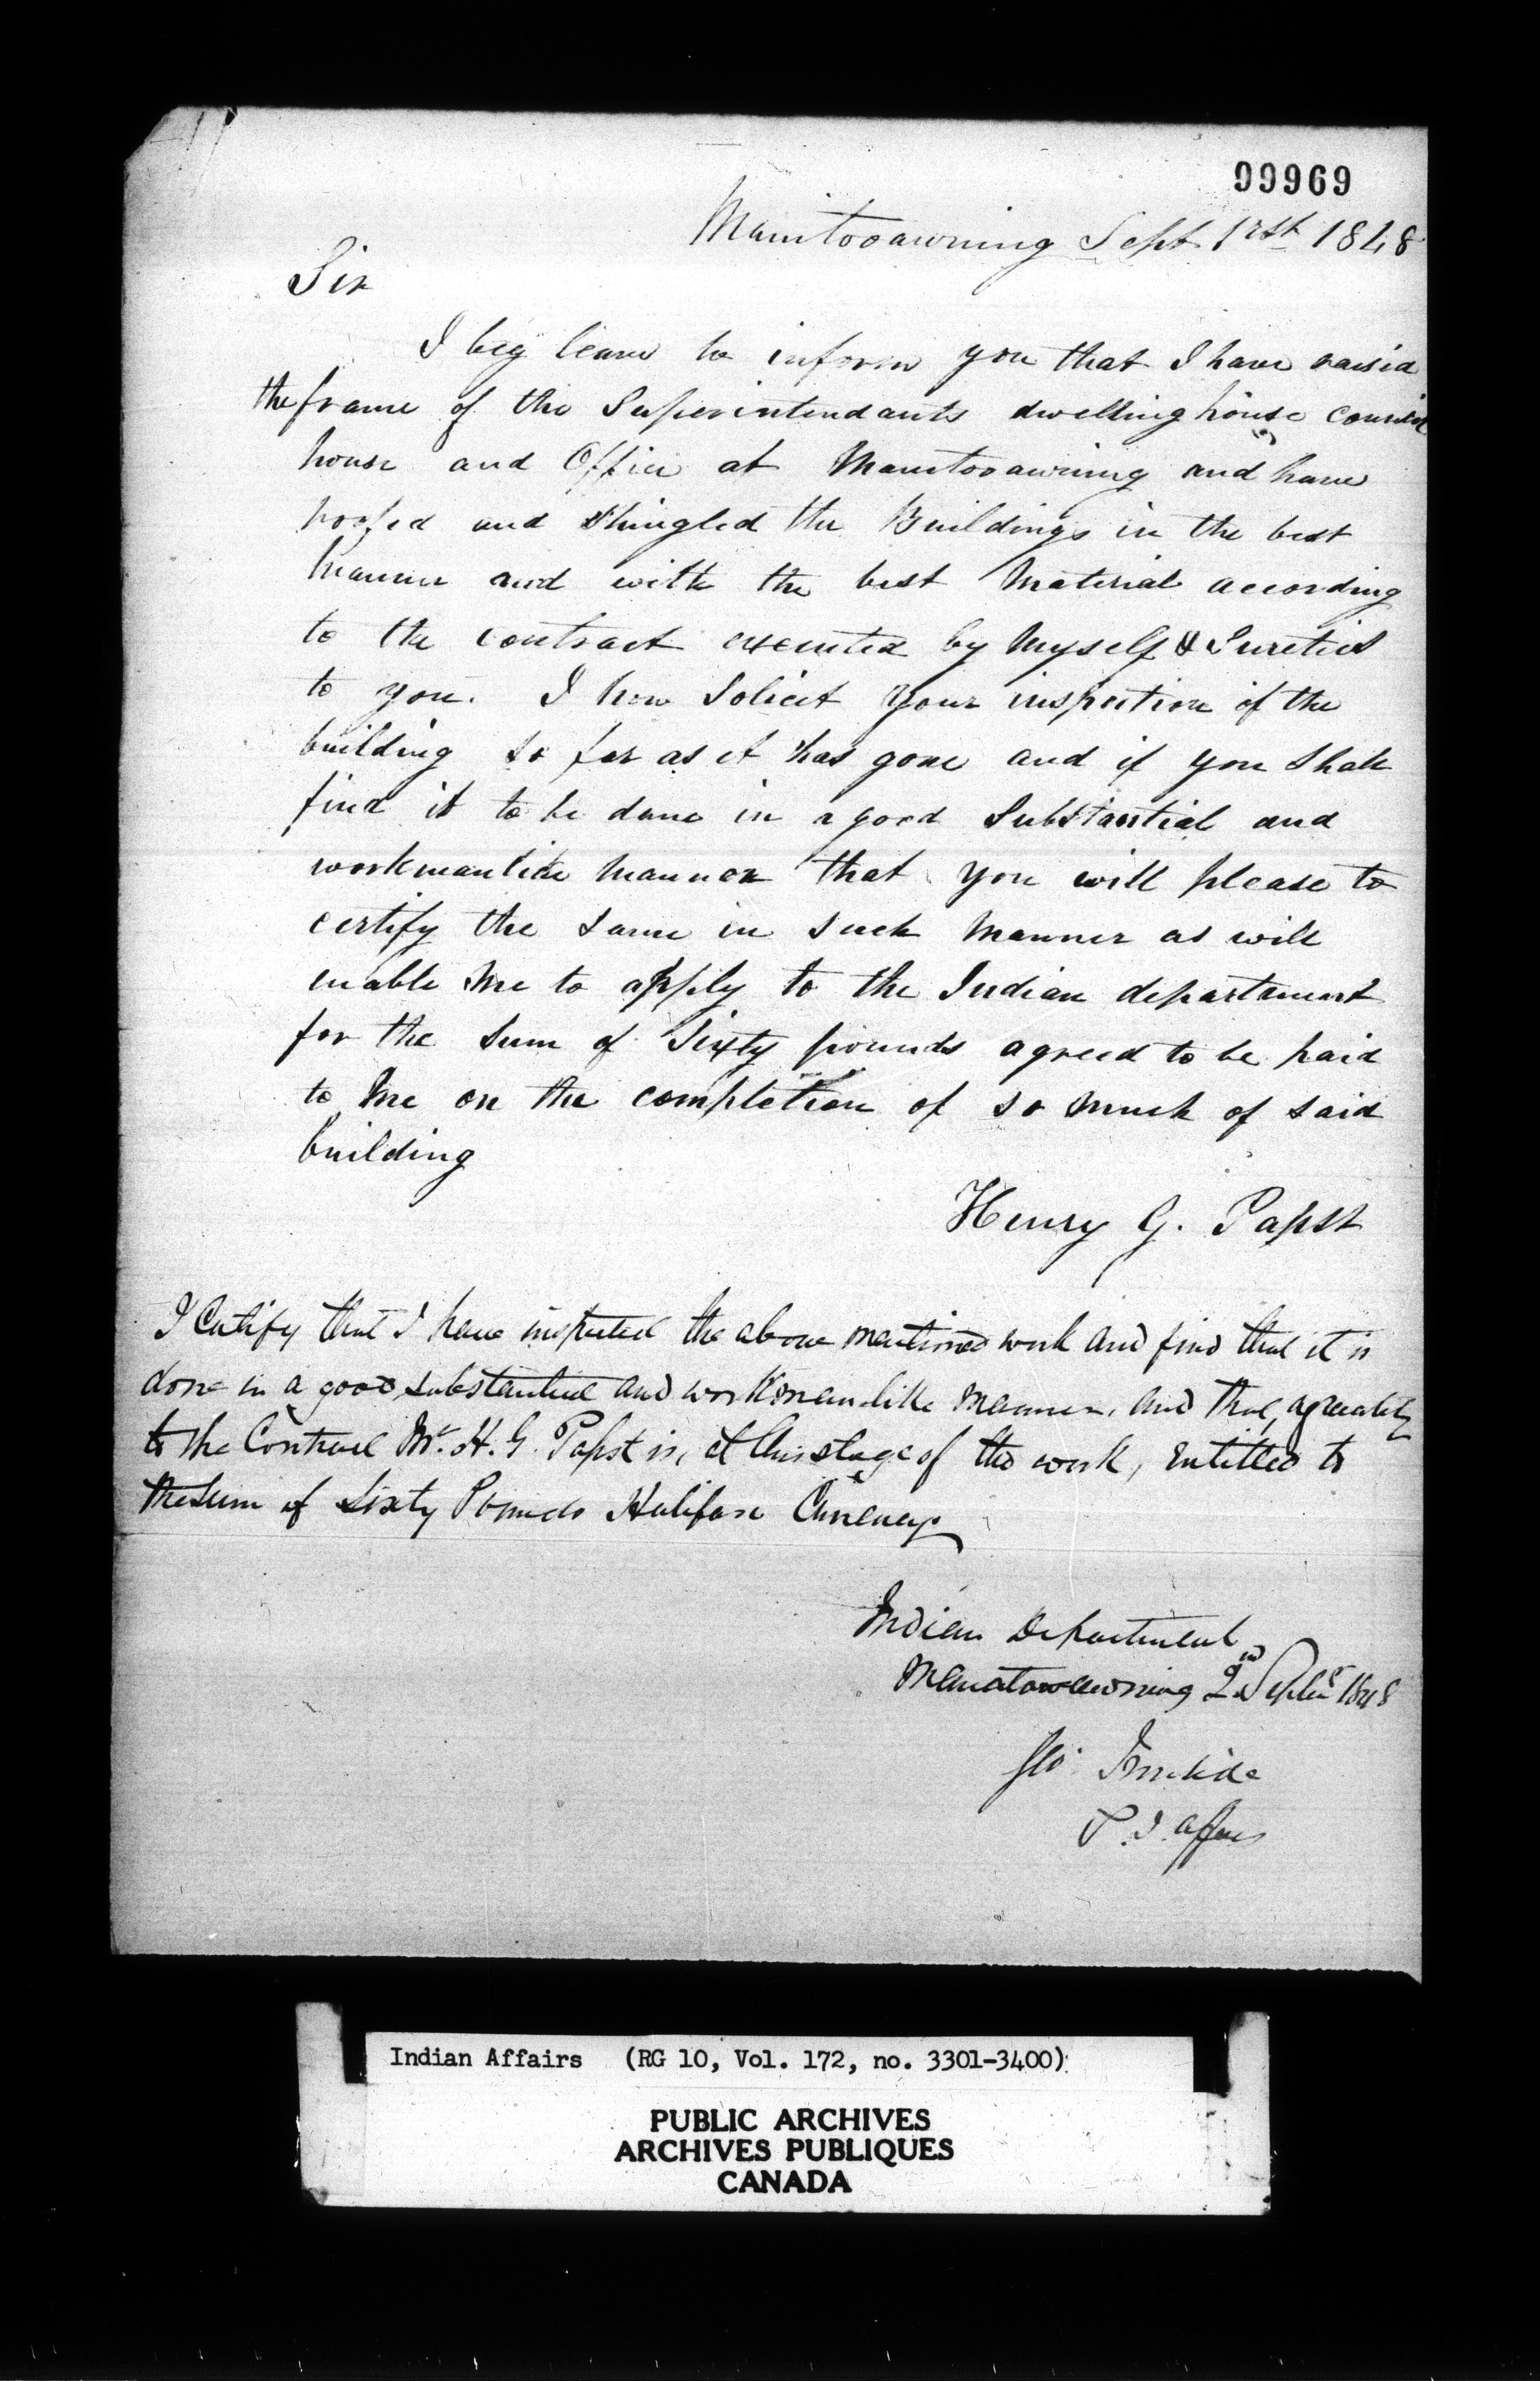 99969
Manitooawning Sept 1rst 1848
Sir
I beg leave to inform you that I have raised
the frame of the Superintendants dwelling house council
house and Office at Manitooawning and have
roofed and Shingled the Buildings in the best
manner and with the best Material according
to the contract executed by Myself & Sureties
to you. I now Solicit your inspection of the
building so far as it has gone and if you shall
find it to be done in a good Substantial and
workmanlike manner that you will please to
certify the same in such manner as will
enable me to apply to the Indian department
for the sum of Sixty pounds agreed to be paid
to me on the completion of so much of said
building
Henry G. Papst
I Certify that I have inspected the above mentioned work and find that it is
done in a good substantial and workmanlike manner, and that, agreeably
to the Contract Mr. H. G. Papst is, at this stage of the work, entitled to
the sum of Sixty Pounds Halifax Currency
Indian Department
Manatowawning 2nd Septr 1848
Geo Ironside
S. I. Affairs
Indian Affairs (RG 10, Vol. 172, no. 3301-3400)
PUBLIC ARCHIVES
ARCHIVES PUBLIQUES
CANADA